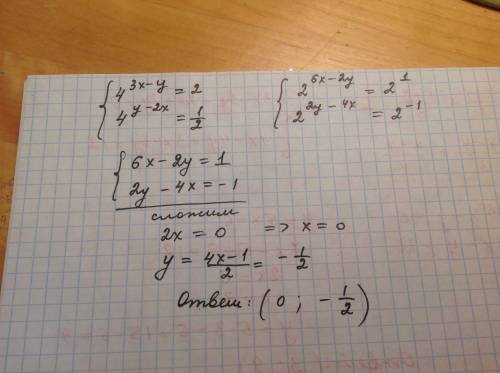 { 4^{3x-y} = 2
4^{y-2x} = 1/2
{ 2^{6x-2y} = 2^1
2^{2y-4x} = 2^{-1}
{ 6x - 2y = 1
2y - 4x = -1
сложим
2x = 0 => x = 0
y = (4x-1)/2 = -1/2
Ответ: (0 ; -1/2)